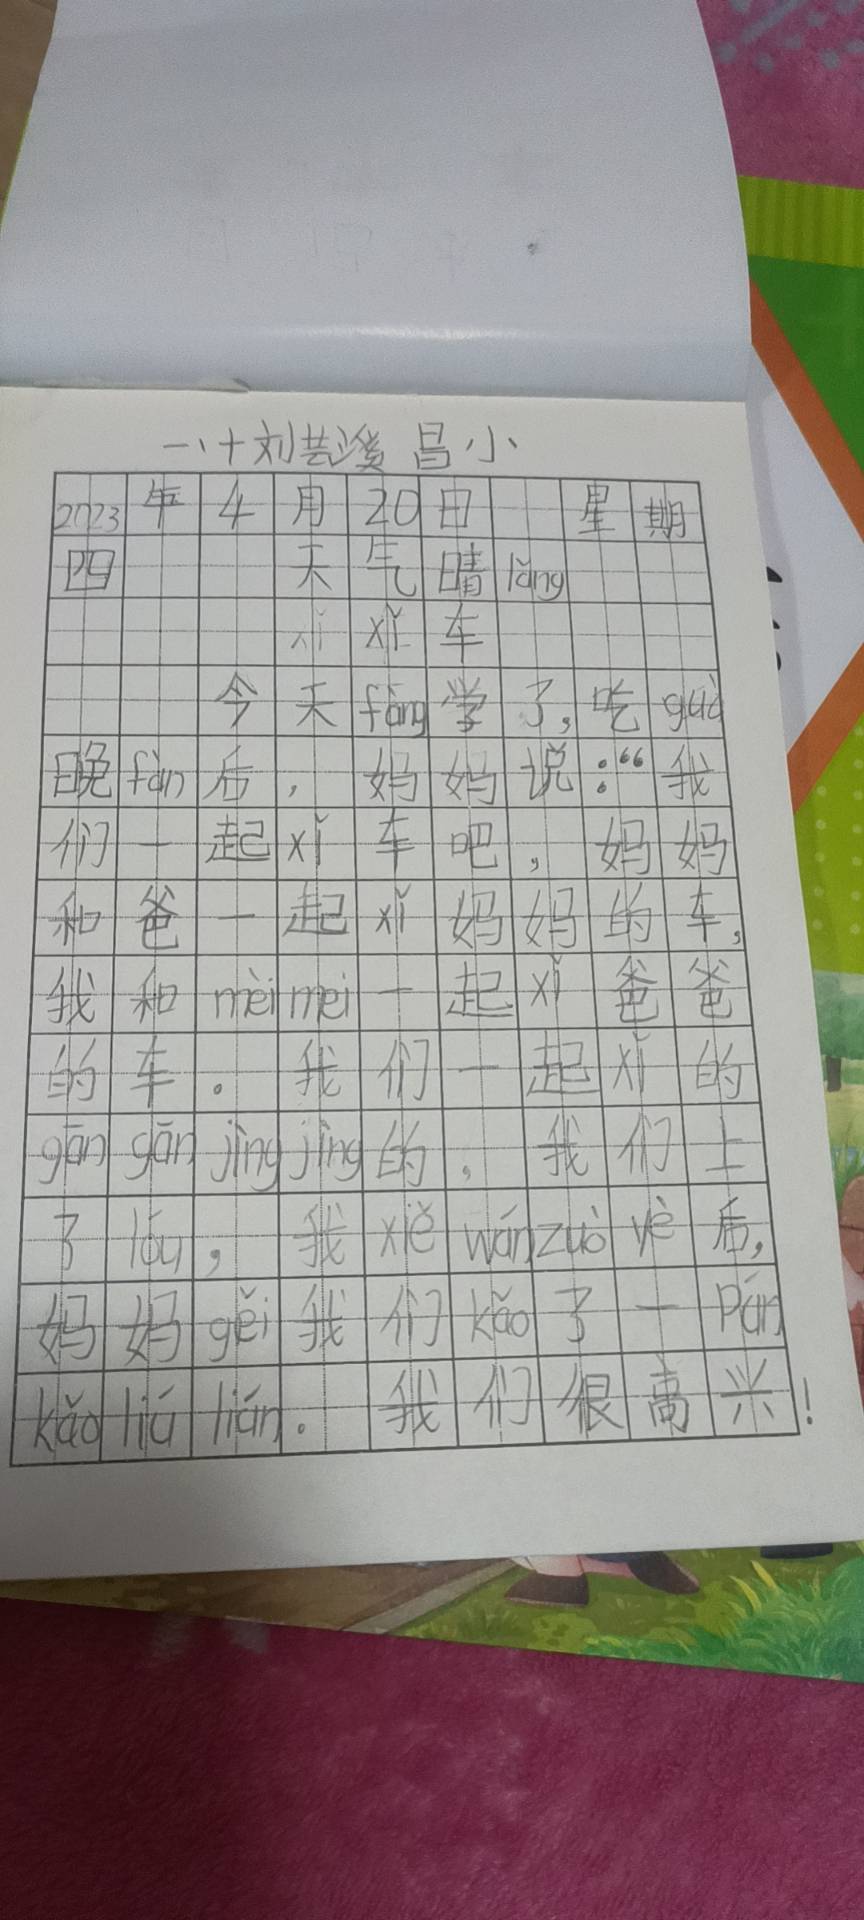 一、十刘芸溪 昌小
2023年4月20日 星期
四 天气晴lǎng
xǐ xǐ 车
今天fàng学了,吃guò
晚fàn后,妈妈说:“我
们一起xǐ车吧,妈妈
和爸一起xǐ妈妈的车,
我和mèimei一起xǐ爸爸
的车。我们一起xǐ的
gāngānjìngjìng的,我们上
了lóu,我xiě wánzuò yè后,
妈妈gěi我们kǎo了一Pán
kǎoliúlián。我们很高兴!